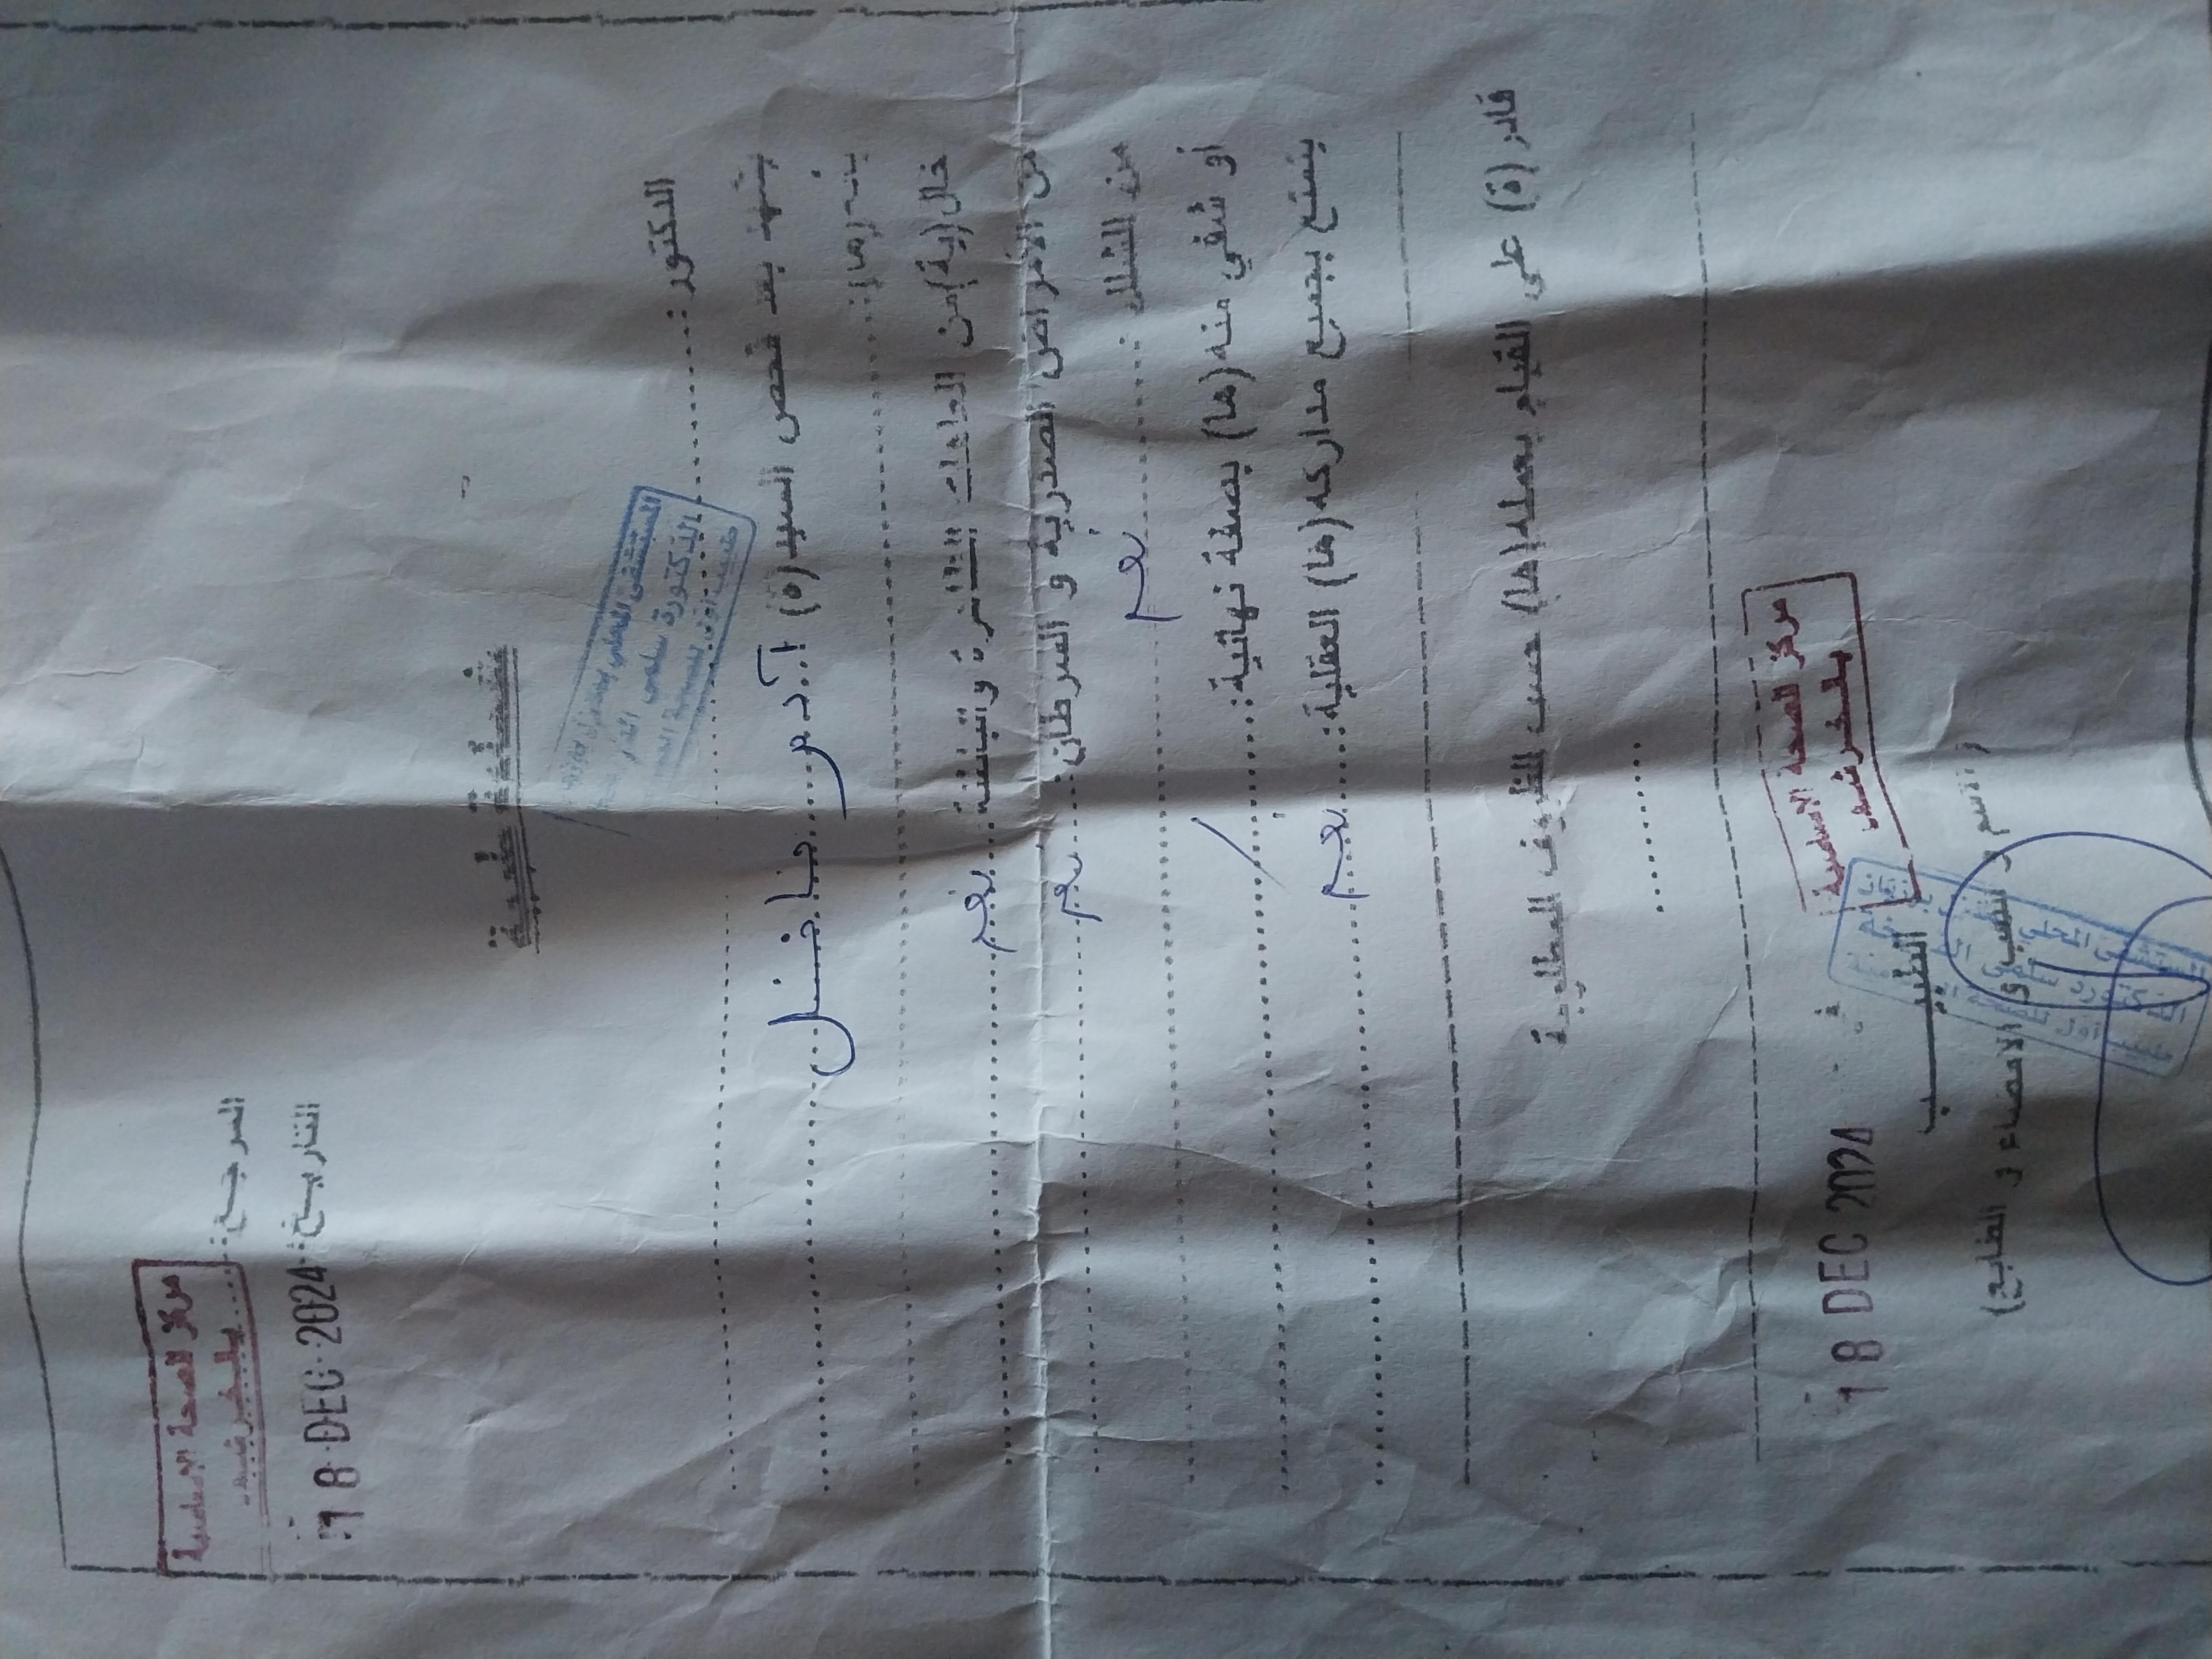 مركز للصحة الأساسية
بالخرشف
المرجع:
التاريخ: 18 DEC 2024
شهادة طبية
المستشفى المحلي بمنزل بوزلفة
الدكتورة سلمى
الدكتور:
يشهد بعد فحص السيد(ة) آدم
بأنه(ها):
خال(ية) من العاهات الظاهرة والباطنة نعم
من الأمراض الصدرية و السرطان: نعم
من الشلل: نعم
أو شفي منه(ها) بصفة نهائية: /
يتمتع بجميع مداركه(ها) العقلية: نعم
قادر(ة) على القيام بعمله(ها) حسب الظروف المطلوبة
مركز للصحة الأساسية
بالخرشف
18 DEC 2024
الطبيب
(الاسم و اللقب و الامضاء و الطابع)
المستشفى المحلي
الدكتورة سلمى
طبيب أول للصحة